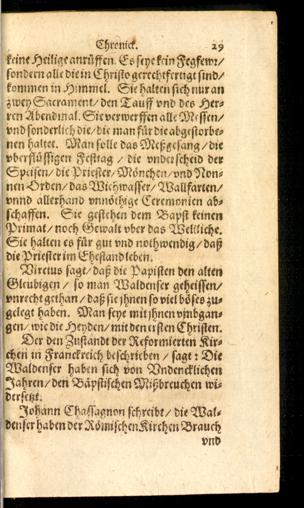 Chronick. 29
keine Heilige anrüffen. Es seye kein Fegfewr/
sondern alle die in Christo gerechtfertigt sind/
kommen in Himmel. Sie halten sich nur an
zwey Sacrament/ den Tauff vnd des Her-
ren Abendmal. Sie verwerffen alle Messen/
vnd sonderlich die/ die man für die abgestorbe-
nen haltet. Man solle das Meßgesang/ die
vberflüssigen Festtag/ die vnderscheid der
Speisen/ die Priester/ Mönchen/ vnd Non-
nen-Orden/ das Wichwasser/ Wallfarten/
vnnd allerhand vnnöthige Ceremonien ab-
schaffen. Sie gestehen dem Bapst keinen
Primat/ noch Gewalt vber das Weltliche.
Sie halten es für gut vnd nothwendig/ daß
die Priester im Ehestand leben.
Viretus sagt/ daß die Papisten den alten
Gleubigen/ so man Waldenser geheissen/
vnrecht gethan/ daß sie jhnen so viel böses zu-
gelegt haben. Man seye mit jhnen vmbgan-
gen/ wie die Heyden/ mit den ersten Christen.
Der den Zustandt der Reformierten Kir-
chen in Franckreich beschrieben/ sagt: Die
Waldenser haben sich von Vndencklichen
Jahren/ den Bäpstischen Mißbreuchen wi-
dersetzt.
Johann Chassagnon schreibt/ die Wal-
denser haben der Römischen Kirchen Brauch
vnd